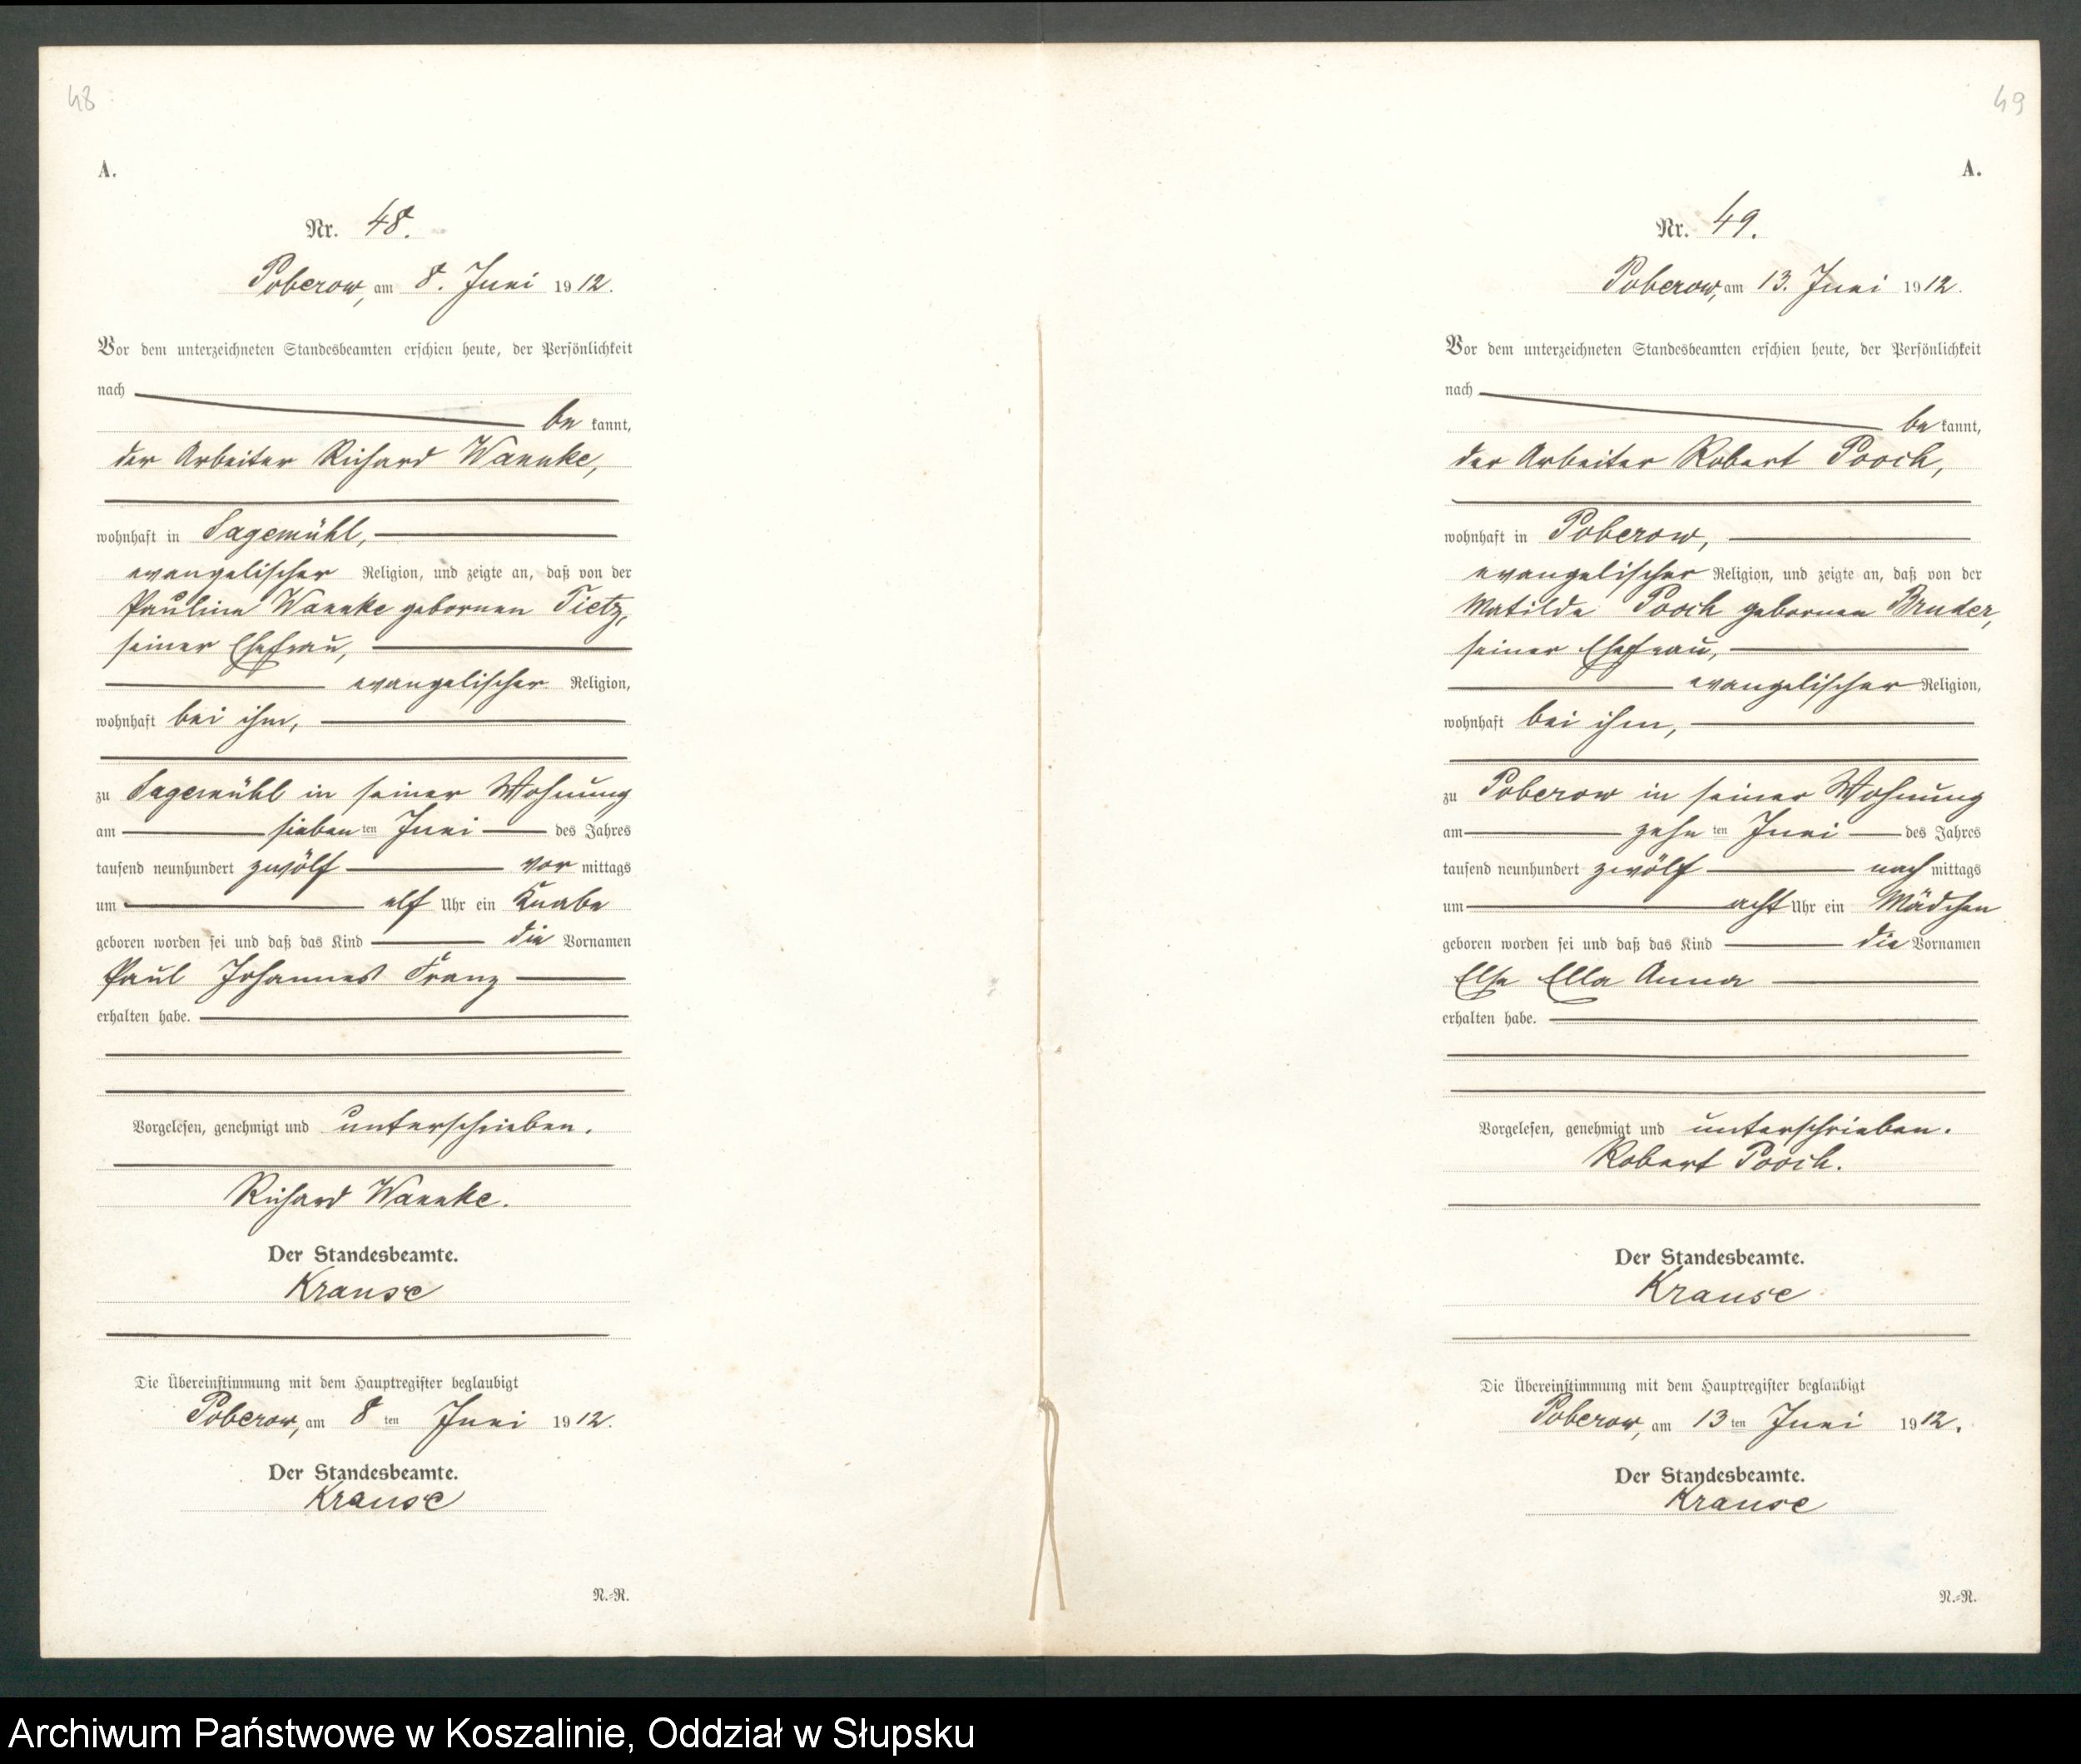 48
A.
Nr. 48.
Poberow, am 8. Juni 1912.
Vor dem unterzeichneten Standesbeamten erschien heute, der Persönlichkeit
nach
be kannt,
der Arbeiter Richard Wannke,
wohnhaft in Sagemühl,
evangelischer Religion, und zeigte an, daß von der
Pauline Wannke gebornen Tietz,
seiner Ehefrau,
evangelischer Religion,
wohnhaft bei ihm,
zu Sagemühl in seiner Wohnung
am sieben ten Juni des Jahres
tausend neunhundert zwölf vor mittags
um elf Uhr ein Knabe
geboren worden sei und daß das Kind die Vornamen
Paul Johannes Franz
erhalten habe.
Vorgelesen, genehmigt und unterschrieben.
Richard Wannke.
Der Standesbeamte.
Krause
Die Übereinstimmung mit dem Hauptregister beglaubigt
Poberow, am 8 ten Juni 1912.
Der Standesbeamte.
Krause
N.-R.
49
A.
Nr. 49.
Poberow, am 13. Juni 1912.
Vor dem unterzeichneten Standesbeamten erschien heute, der Persönlichkeit
nach
be kannt,
der Arbeiter Robert Pooch,
wohnhaft in Poberow,
evangelischer Religion, und zeigte an, daß von der
Matilde Pooch gebornen Bruder,
seiner Ehefrau,
evangelischer Religion,
wohnhaft bei ihm,
zu Poberow in seiner Wohnung
am zehn ten Juni des Jahres
tausend neunhundert zwölf nach mittags
um acht Uhr ein Mädchen
geboren worden sei und daß das Kind die Vornamen
Else Ella Anna
erhalten habe.
Vorgelesen, genehmigt und unterschrieben.
Robert Pooch.
Der Standesbeamte.
Krause
Die Übereinstimmung mit dem Hauptregister beglaubigt
Poberow, am 13 ten Juni 1912.
Der Standesbeamte.
Krause
N.-R.
Archiwum Państwowe w Koszalinie, Oddział w Słupsku